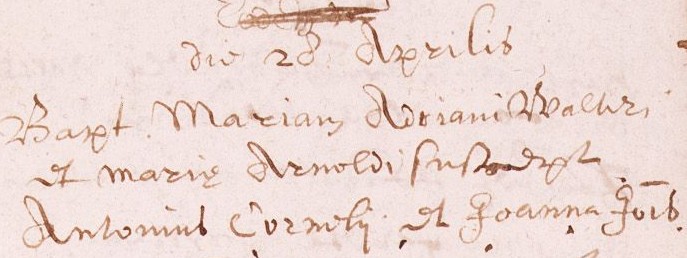 die 28 Aprilis
Bapt. Mariam Adriani Walteri
et marię Arnoldi
Antonius Cornelij et Joanna Jois